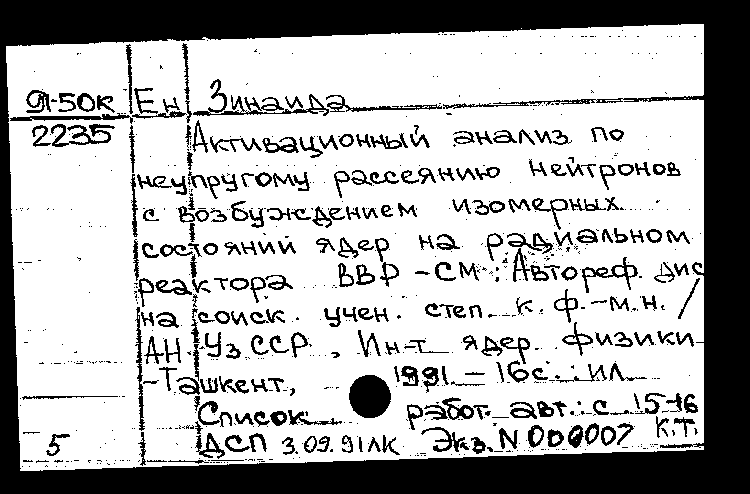 Я-50К Ен Зинаида
2235 Активационный анализ по
неупругому рассеянию нейтронов
с возбуждением изомерных
состояний ядер на радиальном
реактора ВВР-СМ: Автореф. дис
на соиск. учен. степ. к. ф.-м.н. /
АН УзССР, Ин-т ядер. физики
-Ташкент, 1991. - 16с.: ил
Список работ. авт.: с. 15-16
5 ДСП 3.09.91ЛК Экз. N 000007 К.Т.